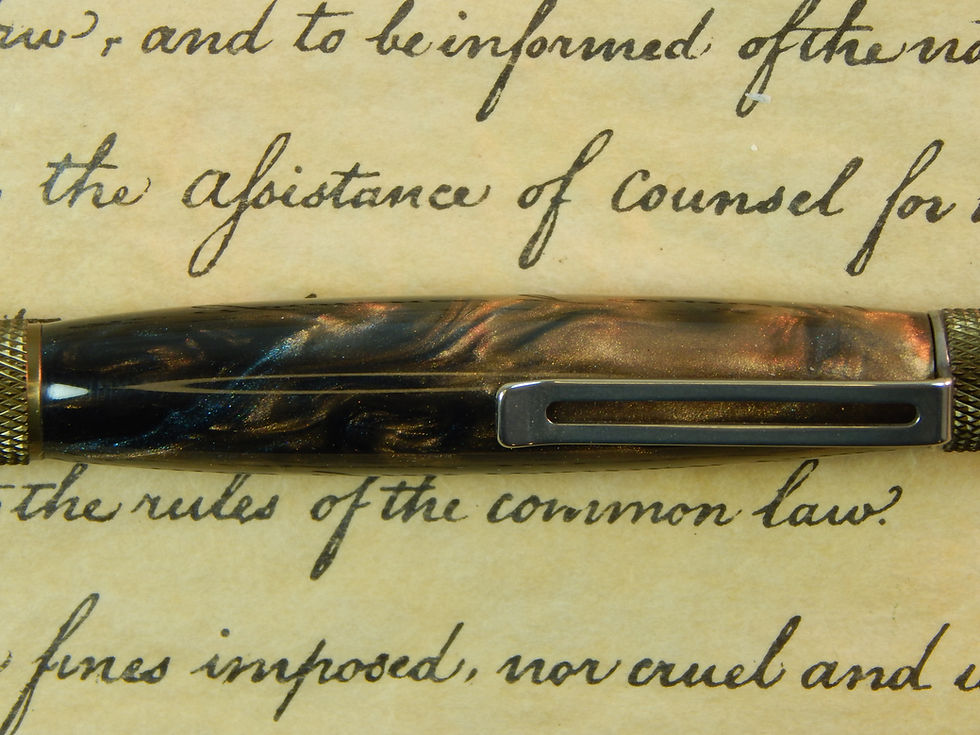 , and to be informed of the
the aſsistance of counsel for
the rules of the common law.
fines imposed, nor cruel and